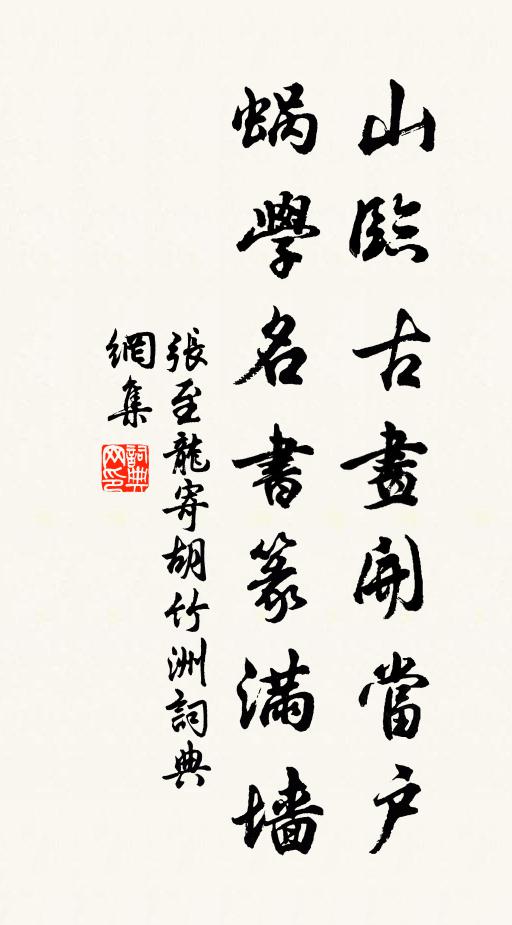 山臨古畫開當户
蝸學名書篆滿墙
張至龍寄胡竹洲詞典
網集
詞典网印